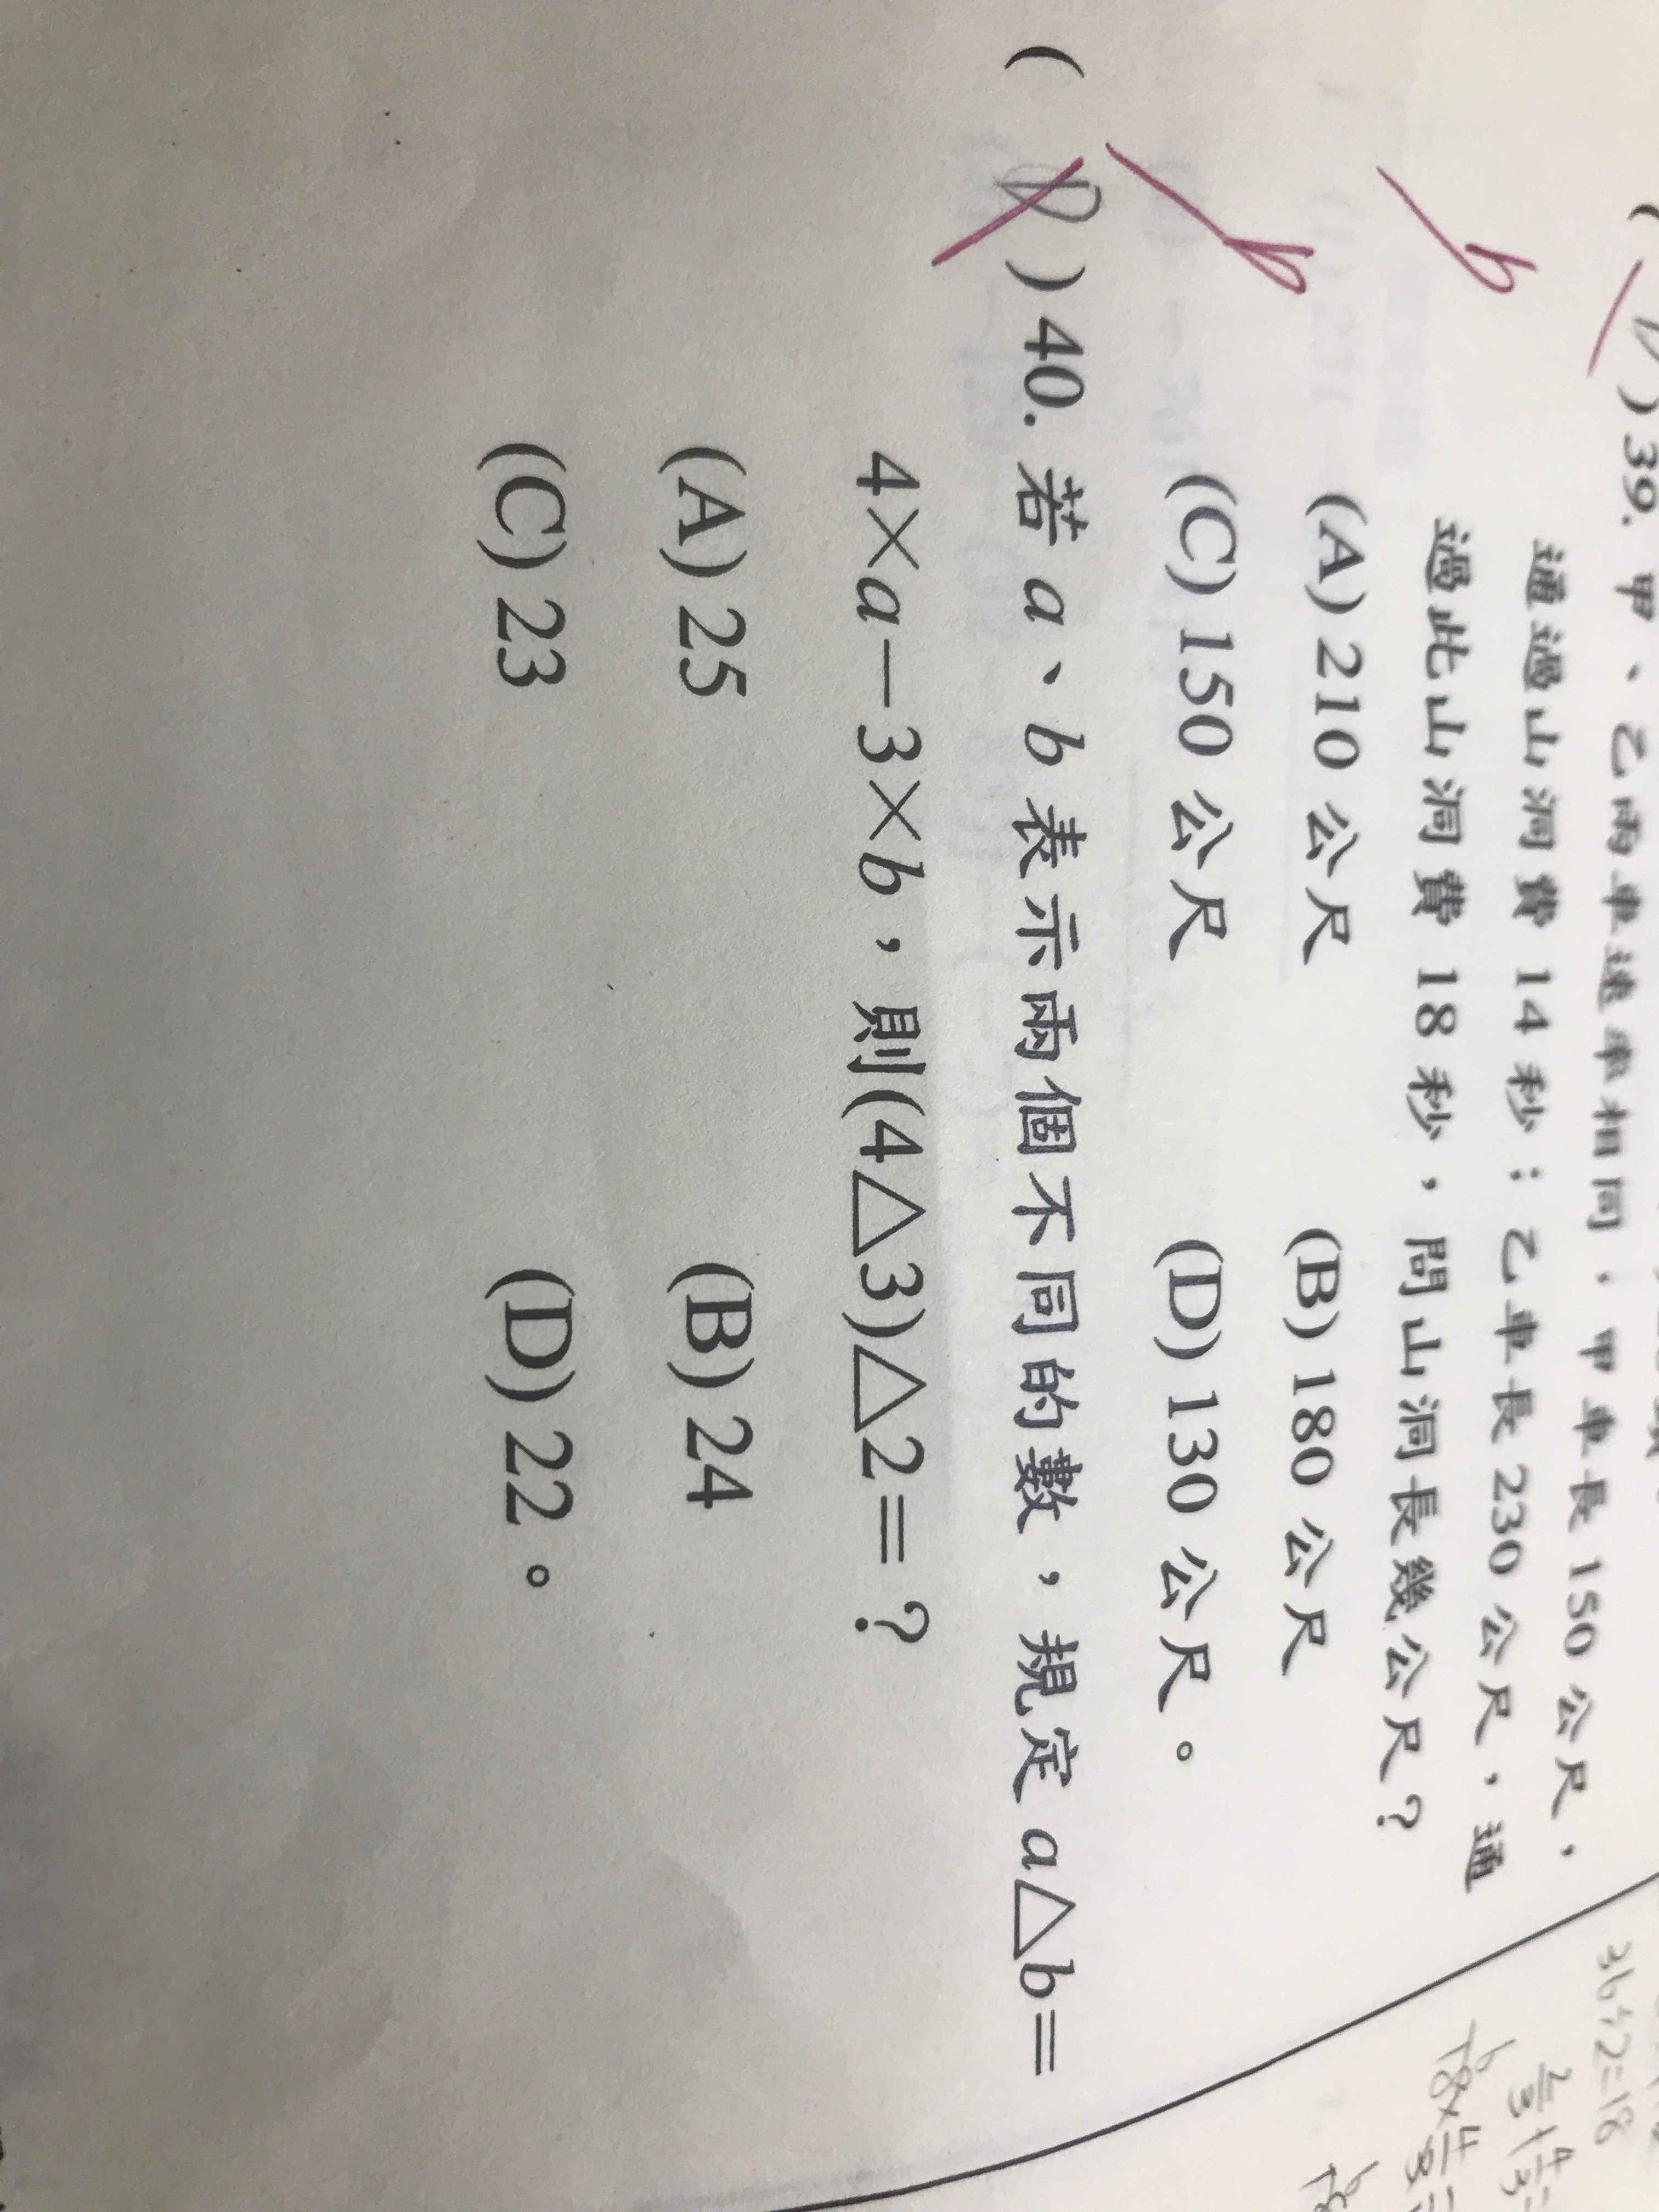 )39. 甲、乙兩車速率相同，甲車長150公尺，
通過山洞費14秒；乙車長230公尺，通
過此山洞費18秒，問山洞長幾公尺？
(A) 210 公尺 (B) 180 公尺
(C) 150 公尺 (D) 130 公尺。
( D )40. 若 a、b 表示兩個不同的數，規定 a△b=
4×a－3×b，則(4△3)△2=？
(A) 25 (B) 24
(C) 23 (D) 22。
36÷2=18